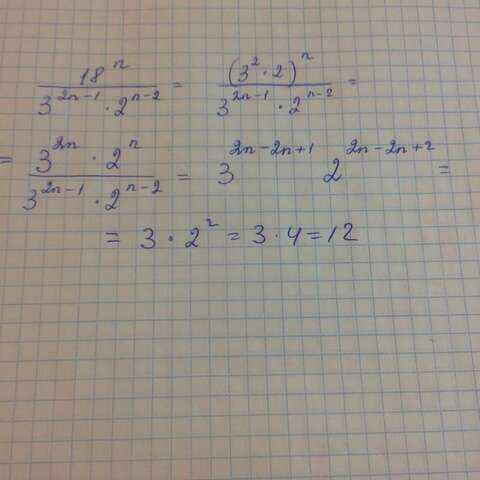 18^n / (3^(2n-1) · 2^(n-2)) = (3^2 · 2)^n / (3^(2n-1) · 2^(n-2)) =
= (3^(2n) · 2^n) / (3^(2n-1) · 2^(n-2)) = 3^(2n-2n+1) 2^(2n-2n+2) =
= 3 · 2^2 = 3 · 4 = 12